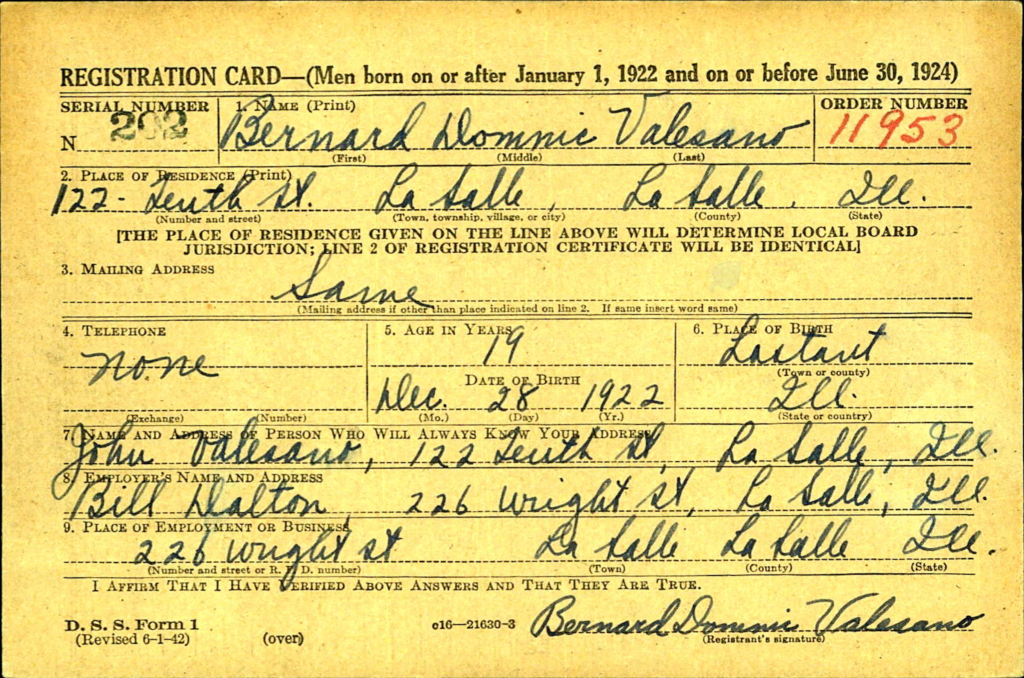 REGISTRATION CARD—(Men born on or after January 1, 1922 and on or before June 30, 1924)
SERIAL NUMBER 1. NAME (Print) ORDER NUMBER
N 202 Bernard Dommic Valesano 11953
(First) (Middle) (Last)
2. PLACE OF RESIDENCE (Print)
122- Tenth St. La Salle, La Salle, Ill.
(Number and street) (Town, township, village, or city) (County) (State)
[THE PLACE OF RESIDENCE GIVEN ON THE LINE ABOVE WILL DETERMINE LOCAL BOARD
JURISDICTION; LINE 2 OF REGISTRATION CERTIFICATE WILL BE IDENTICAL]
3. MAILING ADDRESS
Same
(Mailing address if other than place indicated on line 2. If same insert word same)
4. TELEPHONE 5. AGE IN YEARS 6. PLACE OF BIRTH
none 19 Lostant
DATE OF BIRTH (Town or county)
Dec. 28 1922 Ill.
(Exchange) (Number) (Mo.) (Day) (Yr.) (State or country)
7. NAME AND ADDRESS OF PERSON WHO WILL ALWAYS KNOW YOUR ADDRESS
John Valesano, 122 Tenth St, La Salle, Ill.
8. EMPLOYER'S NAME AND ADDRESS
Bill Dalton, 226 Wright St, La Salle, Ill.
9. PLACE OF EMPLOYMENT OR BUSINESS
226 Wright St La Salle La Salle Ill.
(Number and street or R. F. D. number) (Town) (County) (State)
I AFFIRM THAT I HAVE VERIFIED ABOVE ANSWERS AND THAT THEY ARE TRUE.
D. S. S. Form 1
(Revised 6-1-42) (over) c16—21630-3 Bernard Dommic Valesano
(Registrant's signature)